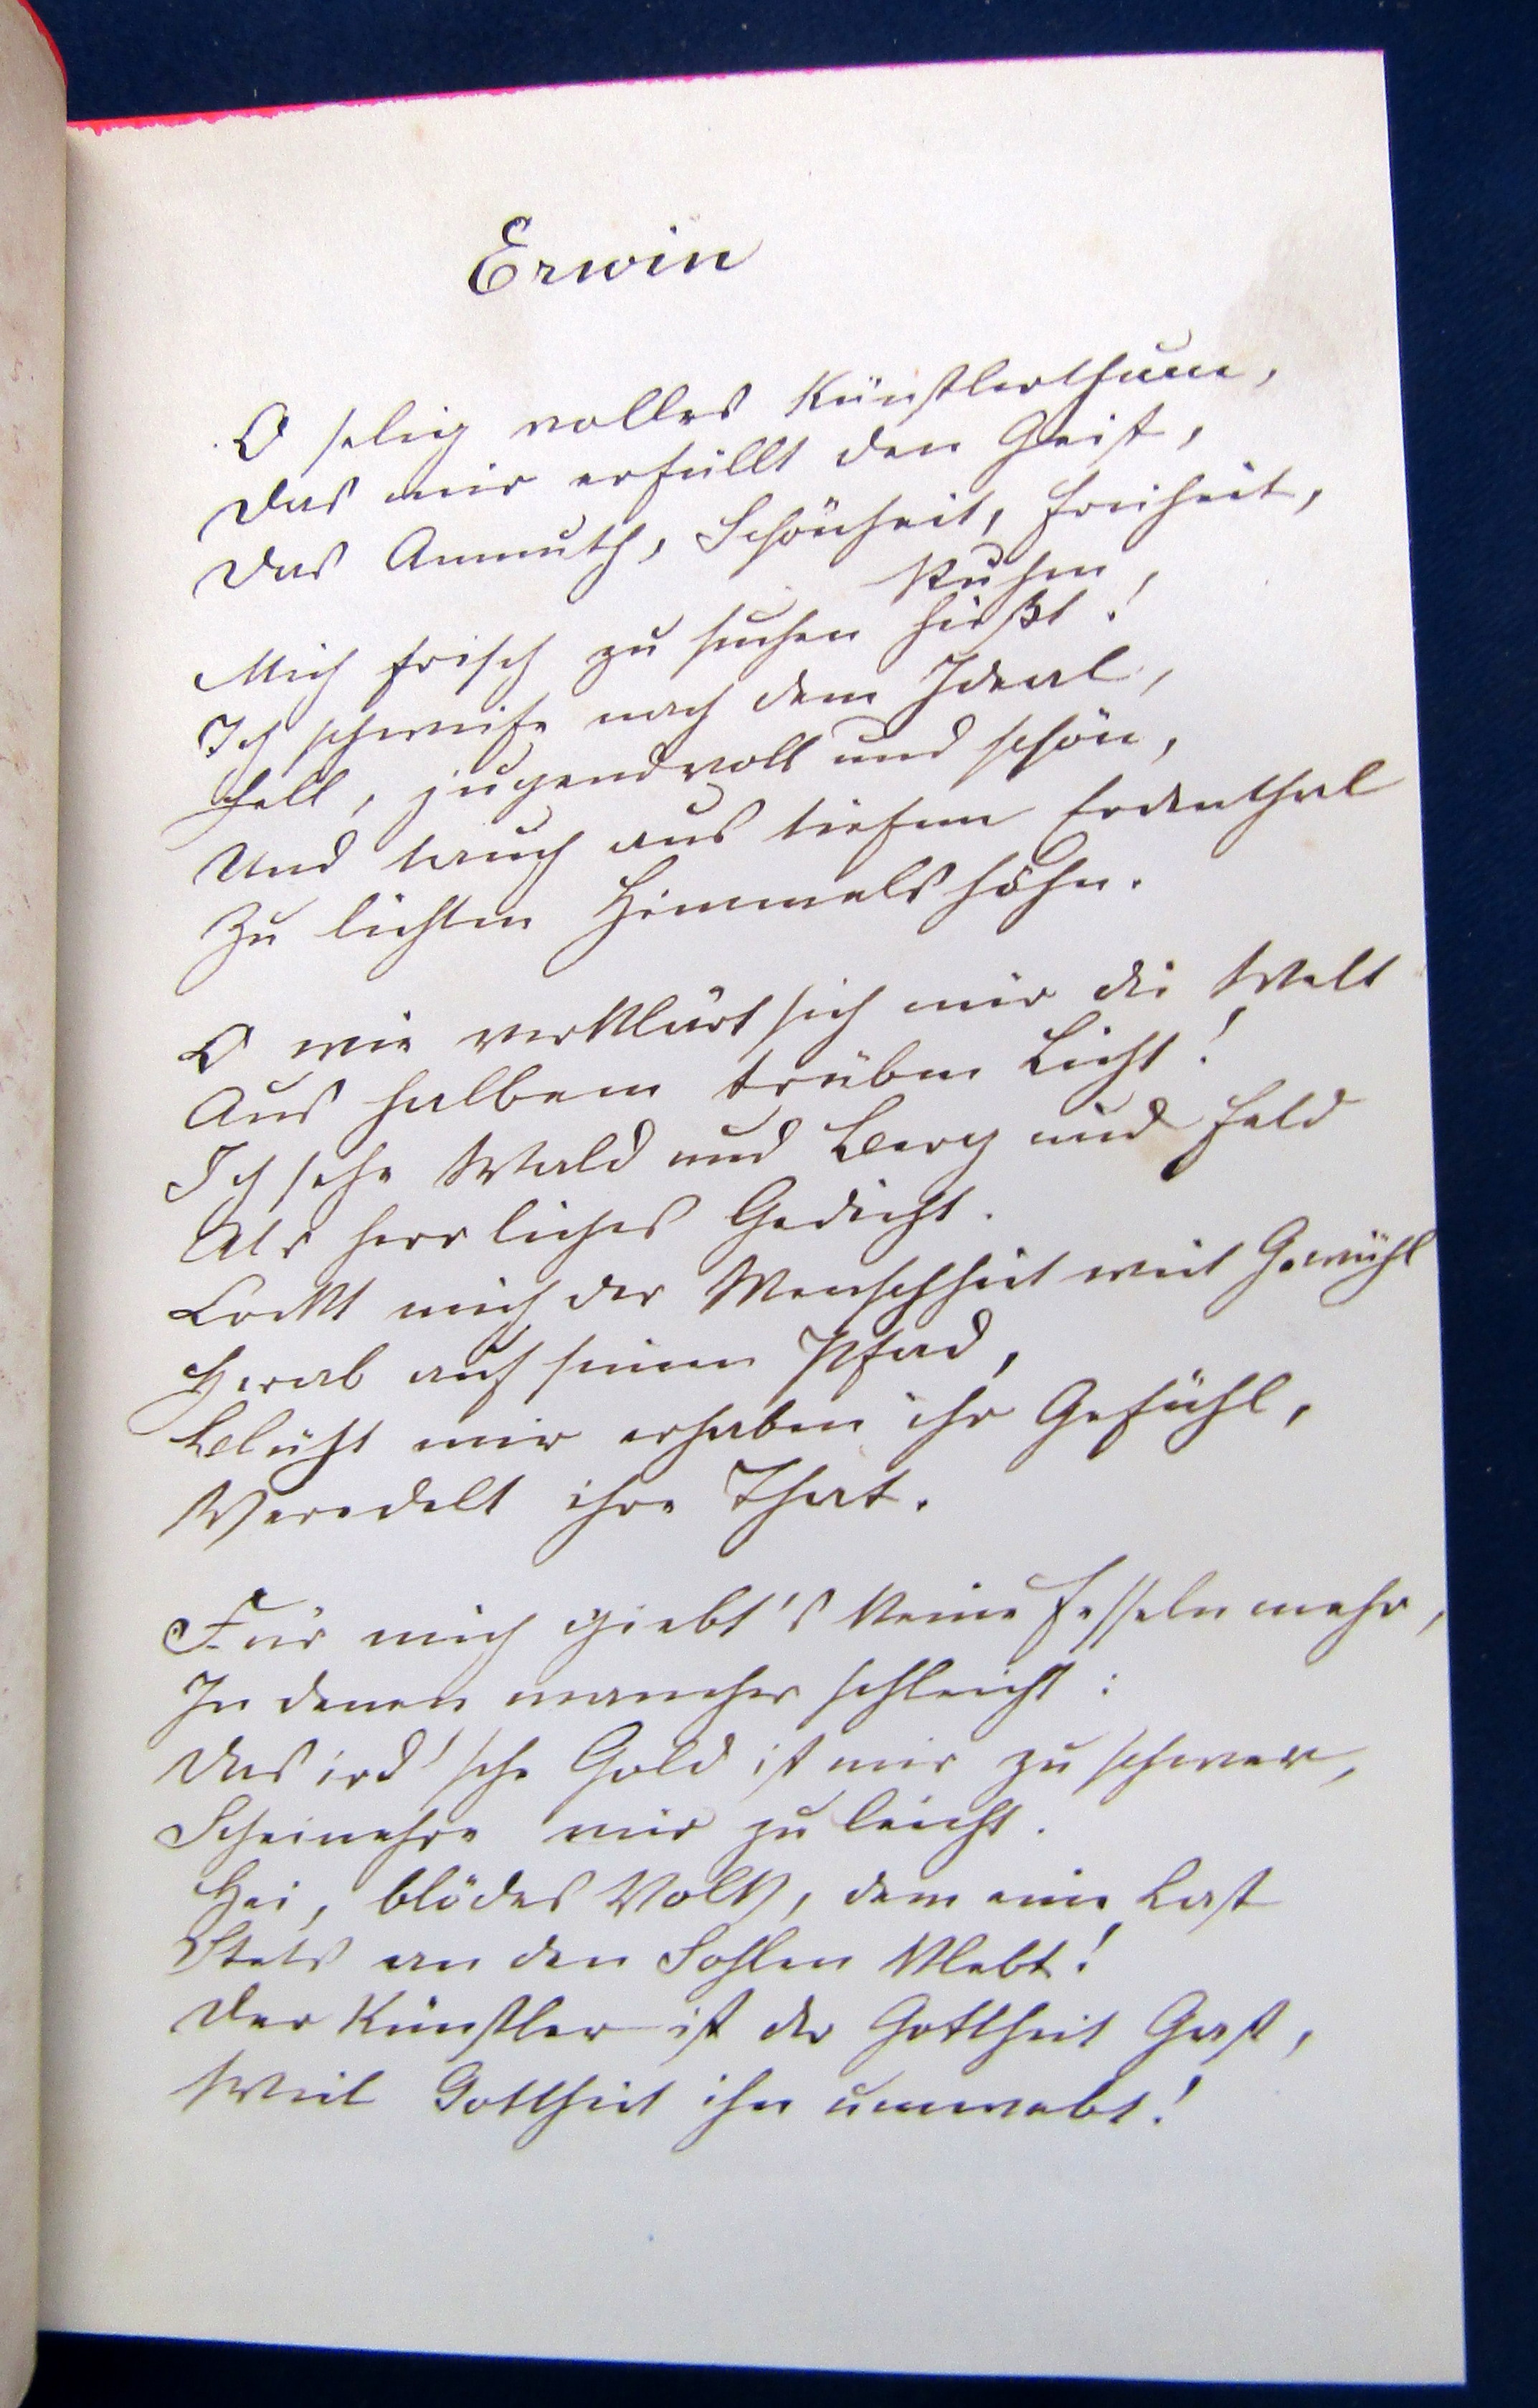 Erwin
O selig volles Künstlerthum,
Das mir erfüllt den Geist,
Das Anmuth, Schönheit, Freiheit,
Ruhm,
Mich frisch zu suchen heißt!
Ich schweife nach dem Ideal,
Hell, jugendvoll und schön,
Und tauch aus tiefem Erdenthal
Zu lichten Himmelshöhn.
O wie verklärt sich mir die Welt
Aus halbem trüben Licht!
Ich sehe Wald und Berg und Feld
Als herrliches Gedicht.
Lockt mich der Menschheit weit Gewühl
Herab auf seinen Pfad,
Blüht mir erhaben ihr Gefühl,
Veredelt ihre That.
Für mich giebt's keine Fesseln mehr,
In denen mancher schleicht:
Das ird'sche Gold ist mir zu schwer,
Scheinehre mir zu leicht.
Hei, blödes Volk, dem eine Last
Stets an den Sohlen klebt!
Der Künstler ist der Gottheit Gast,
Weil Gottheit ihn umwebt!